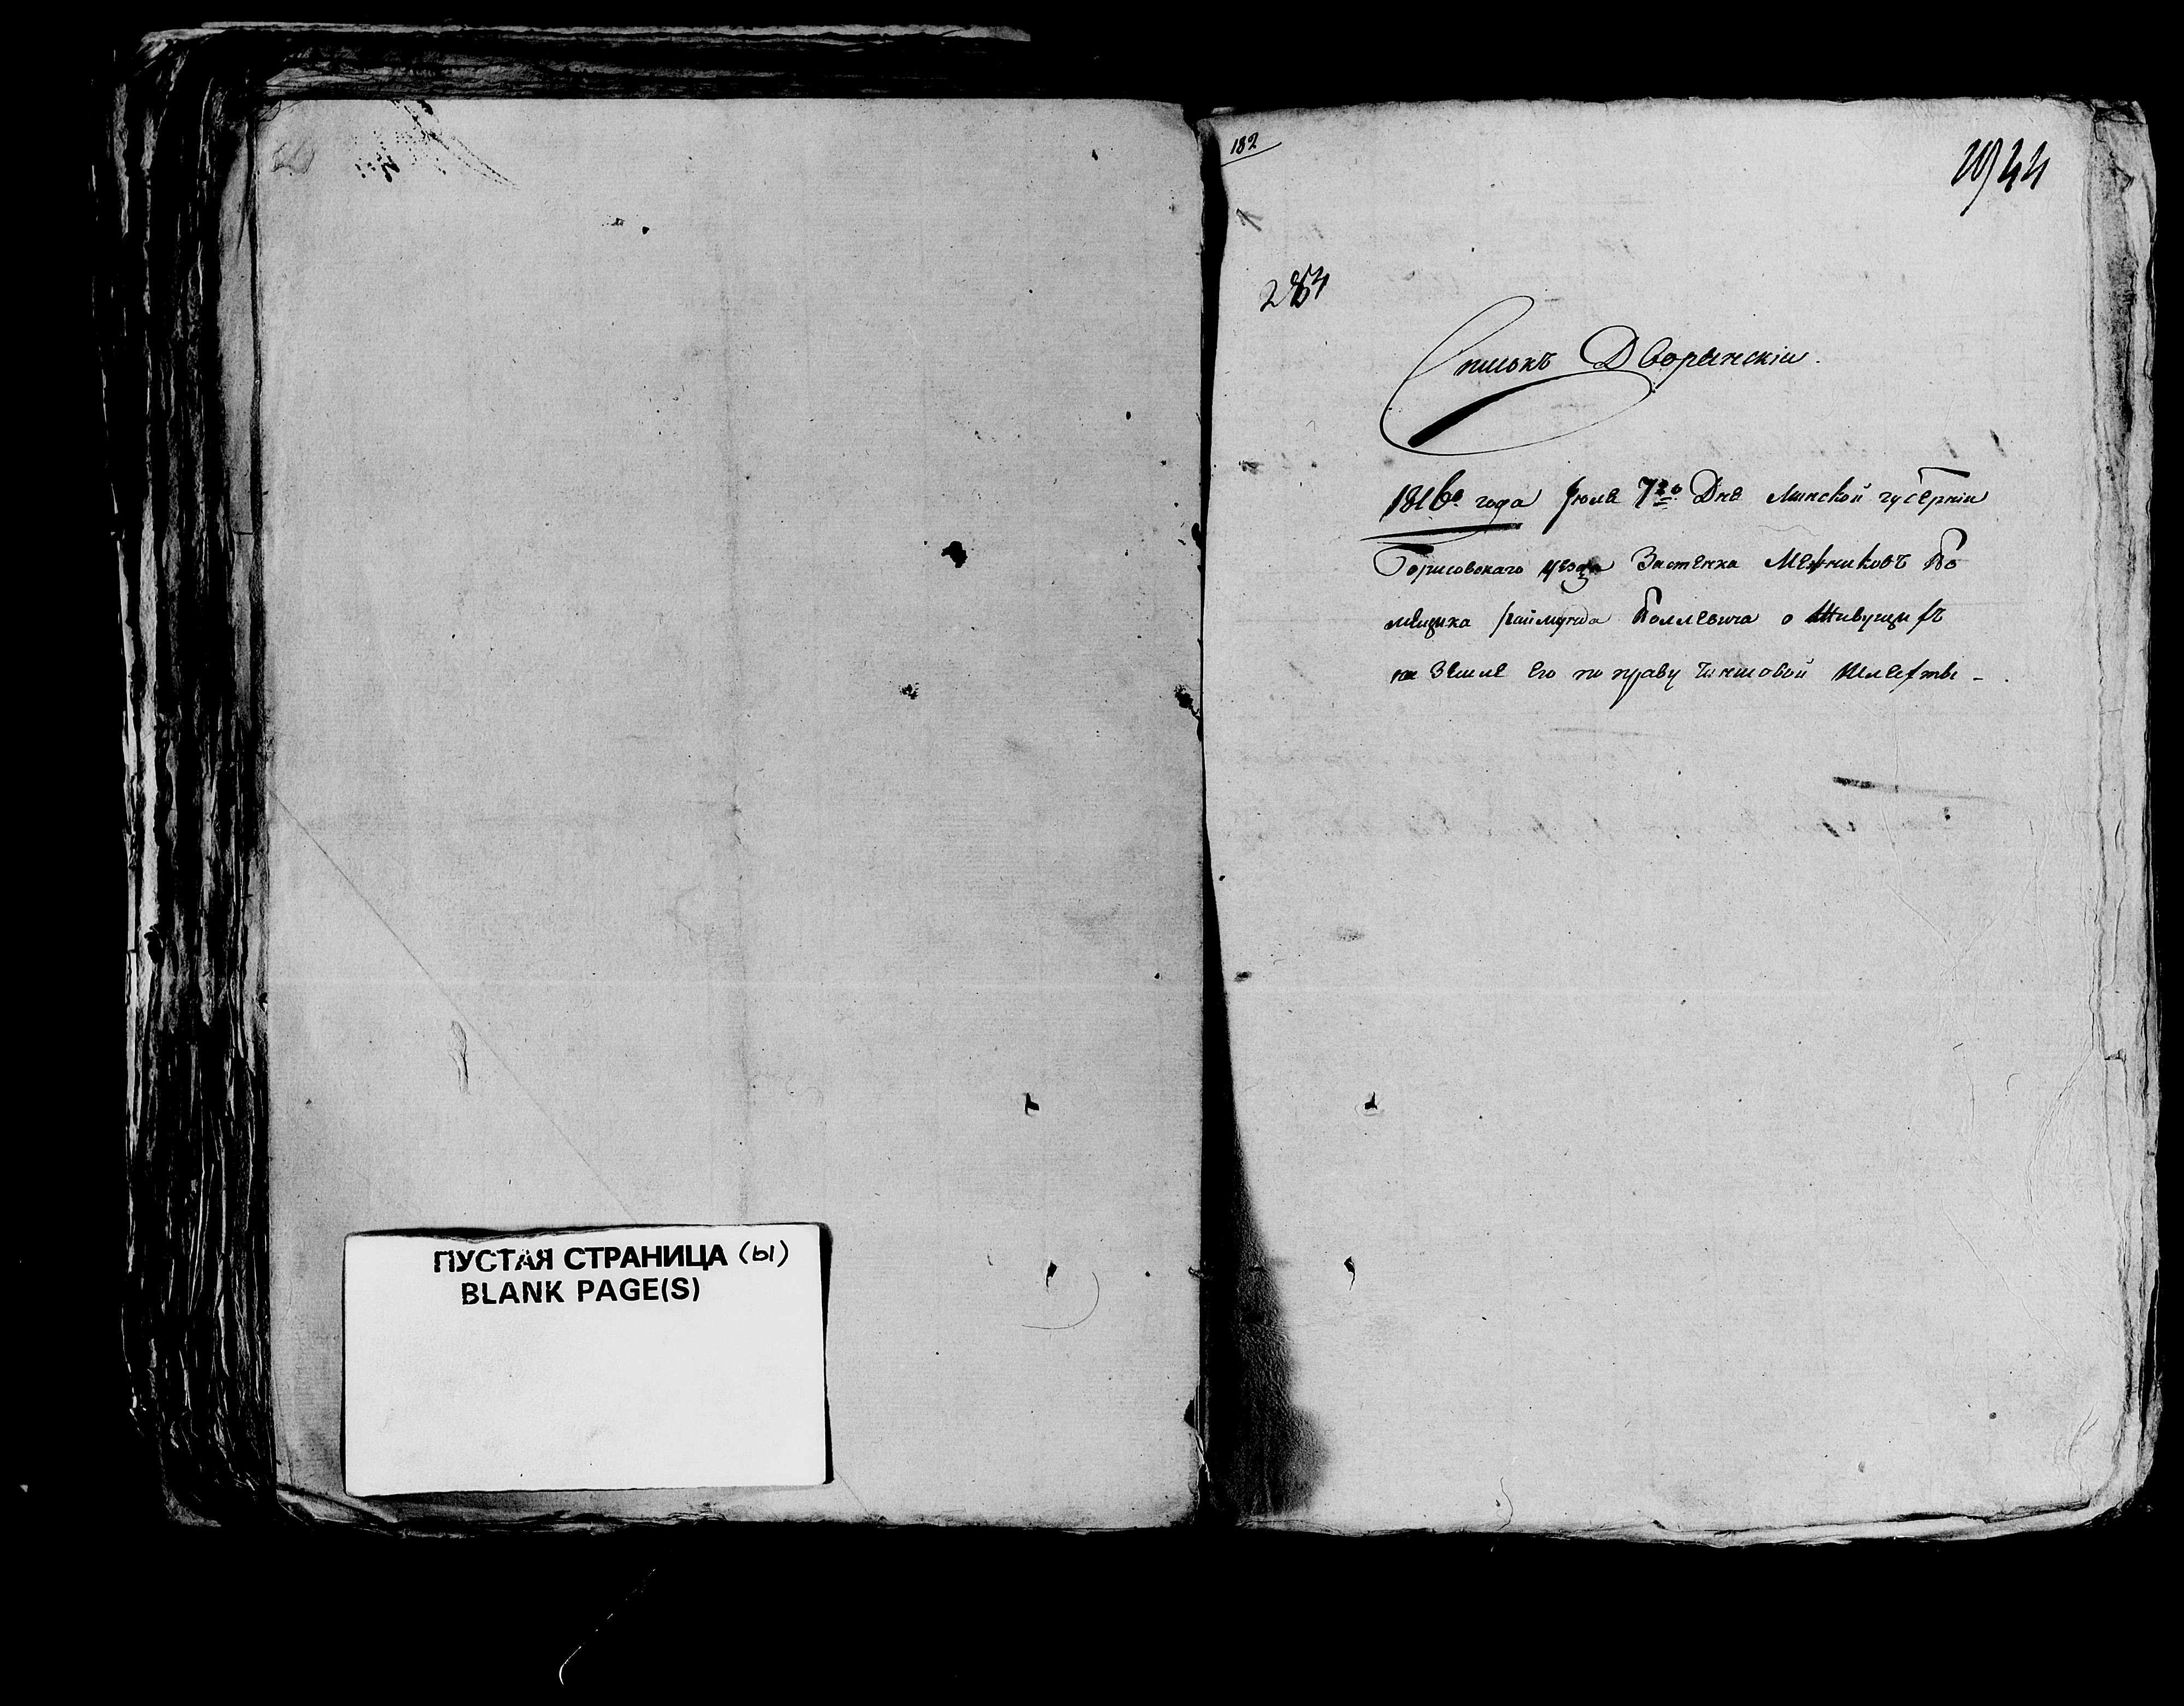 ПУСТАЯ СТРАНИЦА (ы)
BLANK PAGE(S)
182
Списокъ Дворянскiи.
1816го года Июля 7го Дня Минской губернiи
Борисовского уезда Застенка Мехниковъ По
мещика Раймунда Поллевича о Живущихъ
на Земле его по праву Чиншовой Шляхты -